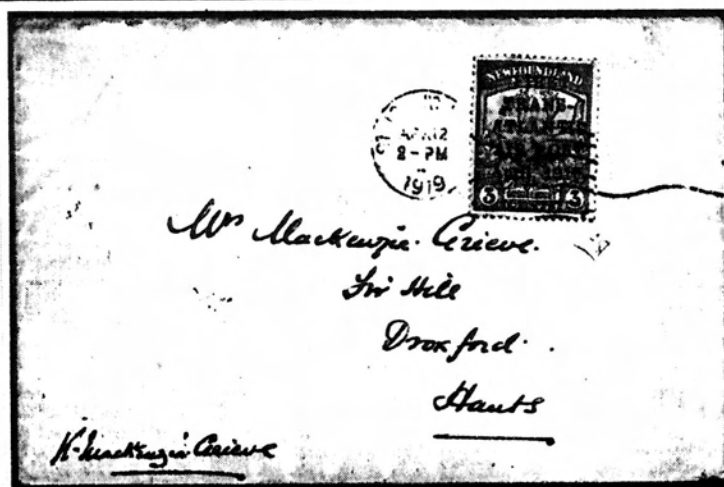 NEWFOUNDLAND
TRANS-
ATLANTIC
AIR POST
3 3
APR 12
2-PM
1919
Mrs Mackenzie-Grieve.
Fir Hill
Droxford.
Hants
K. Mackenzie Grieve